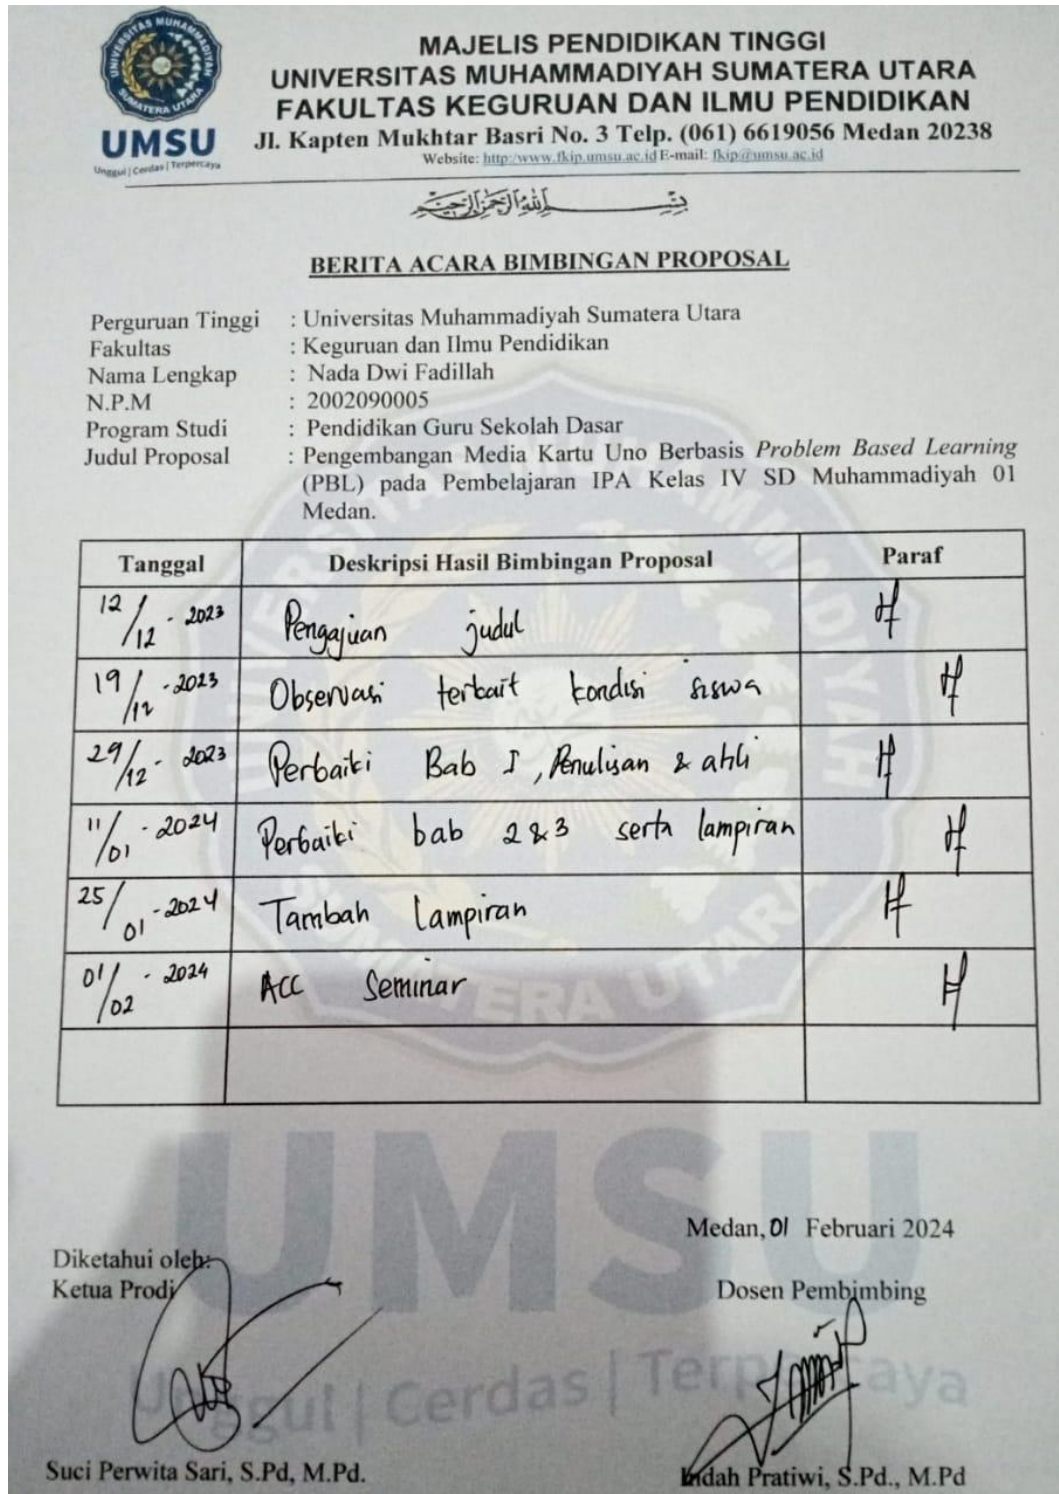 UNIVERSITAS MUHAMMADIYAH
SUMATERA UTARA
UMSU
Unggul | Cerdas | Terpercaya
MAJELIS PENDIDIKAN TINGGI
UNIVERSITAS MUHAMMADIYAH SUMATERA UTARA
FAKULTAS KEGURUAN DAN ILMU PENDIDIKAN
Jl. Kapten Mukhtar Basri No. 3 Telp. (061) 6619056 Medan 20238
Website: http:/www.fkip.umsu.ac.id E-mail: fkip@umsu.ac.id
بِسْمِ اللَّهِ الرَّحْمَنِ الرَّحِيمِ
BERITA ACARA BIMBINGAN PROPOSAL
Perguruan Tinggi : Universitas Muhammadiyah Sumatera Utara
Fakultas : Keguruan dan Ilmu Pendidikan
Nama Lengkap : Nada Dwi Fadillah
N.P.M : 2002090005
Program Studi : Pendidikan Guru Sekolah Dasar
Judul Proposal : Pengembangan Media Kartu Uno Berbasis Problem Based Learning
(PBL) pada Pembelajaran IPA Kelas IV SD Muhammadiyah 01
Medan.
Tanggal Deskripsi Hasil Bimbingan Proposal Paraf
12/12 - 2023 Pengajuan judul
19/12 - 2023 Observasi terkait kondisi siswa
29/12 - 2023 Perbaiki Bab I, Penulisan & ahli
11/01 - 2024 Perbaiki bab 2 & 3 serta lampiran
25/01 - 2024 Tambah Lampiran
01/02 - 2024 ACC Seminar
UMSU
Unggul | Cerdas | Terpercaya
Medan, 01 Februari 2024
Diketahui oleh:
Ketua Prodi
Dosen Pembimbing
Suci Perwita Sari, S.Pd, M.Pd.
Indah Pratiwi, S.Pd., M.Pd